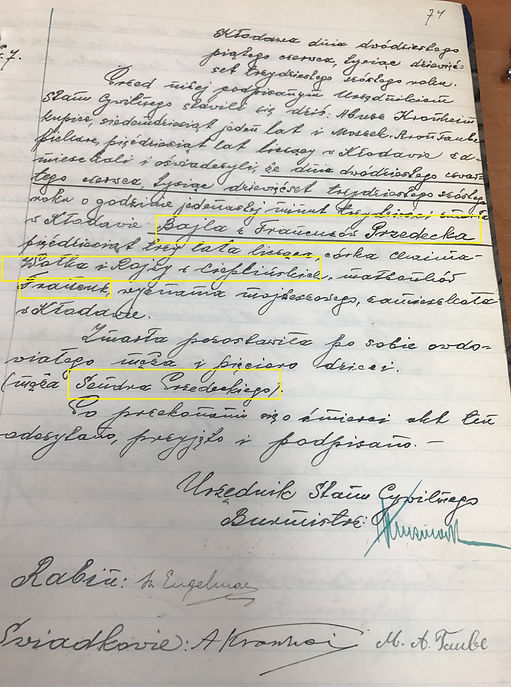 74
Kłodawa dnia dwódziestego
piątego czerwca, tysiąc dziewięć-
set trzydziestego szóstego roku.
7.
Przed niżej podpisanym Urzędnikiem
Stanu Cywilnego stawili się dziś:
kupiec, siedemdziesiąt jeden lat i Moszek-Aron Taube
piekarz, pięćdziesiąt lat liczący w Kłodawie za-
mieszkali i oświadczyli, że dnia dwódziestego czwar-
tego czerwca, tysiąc dziewięćset trzydziestego szóstego
roku o godzinie jedenastej minut trzydzieści zmarła
w Kłodawie Bajla z Francuzów Przedecka
pięćdziesiąt trzy lata licząca, córka Chaima-
i Rajzy z Cieplińskich, małżonków
Francuz, wyznania mojżeszowego, zamieszkała
w Kłodawie.
Zmarła pozostawiła po sobie owdo-
wiałego męża i pięcioro dzieci.
(męża Sendra Przedeckiego)
Po przekonaniu się o śmierci akt ten
odczytano, przyjęto i podpisano. —
Urzędnik Stanu Cywilnego
Burmistrz:
Rabin: Engelman
Świadkowie: M. A. Taube